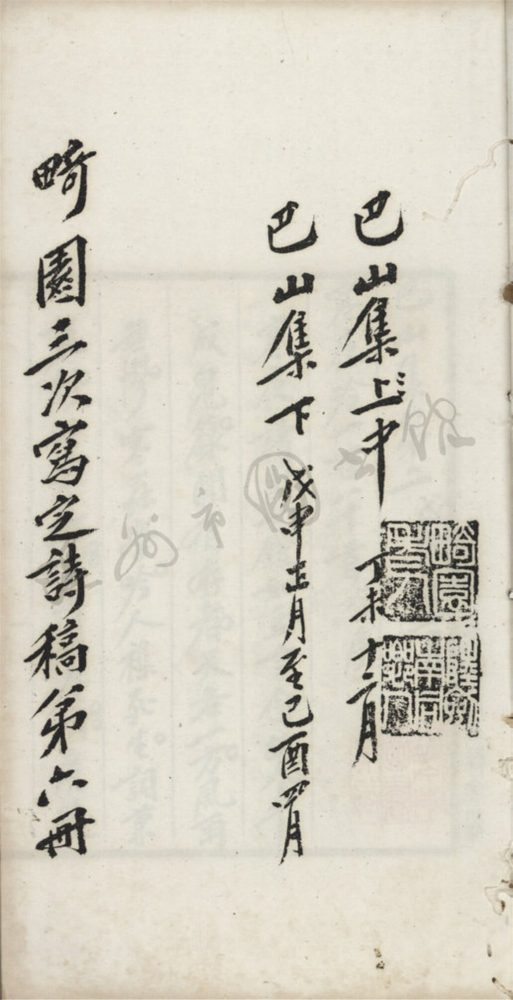 巴山集上中 丁未十二月
巴山集下 戊申正月至己酉四月
畸園三次寫定詩稿第六冊